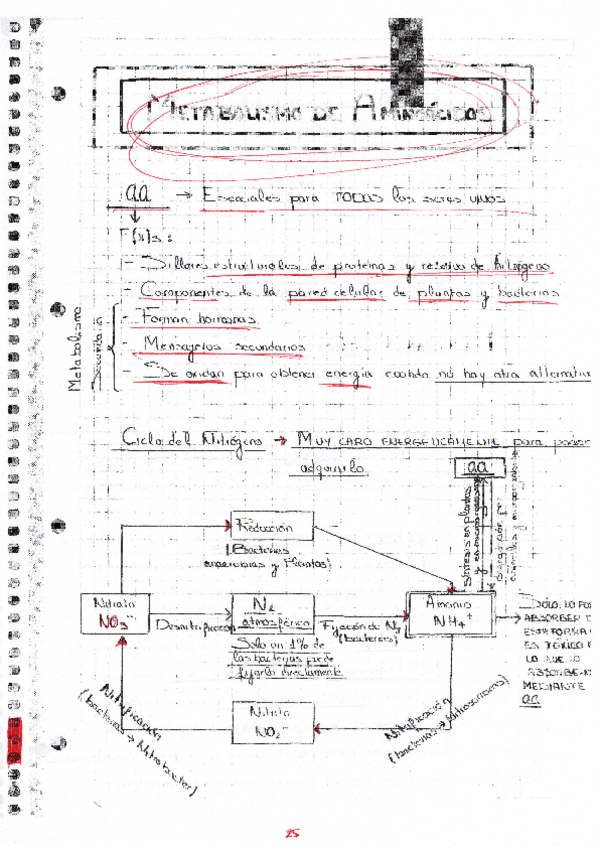 METABOLISMO DE AMINOÁCIDOS
aa → Esenciales para TODOS los seres vivos
F(x)s:
- Sillares estructurales de proteínas y reserva de Nitrógeno
- Componentes de la pared celular de plantas y bacterias
- Forman hormonas
- Mensajeros secundarios
- Se oxidan para obtener energía cuando no hay otra alternativa
Metabolismo
Secundario
Ciclo del Nitrógeno → MUY CARO ENERGETICAMENTE para poder
adquirirlo
aa
Síntesis en plantas
y en microorganismos
animales y microorganismos
Reducción
(Bacterias
anaerobias y Plantas)
Nitrato
NO₃⁻
Desnitrificación
N₂
atmosférico
Solo un 1% de
las bacterias puede
fijarlo directamente
Fijación de N₂
(bacterias)
Amonio
NH₄⁺
SOLO LO
ABSORBER
ESTA FORMA
ES TÓXICO
LO
MEDIANTE
aa
Nitrificación
(bacterias → Nitrobacter)
Nitrito
NO₂⁻
Nitrificación
(bacterias → Nitrosomonas)
25